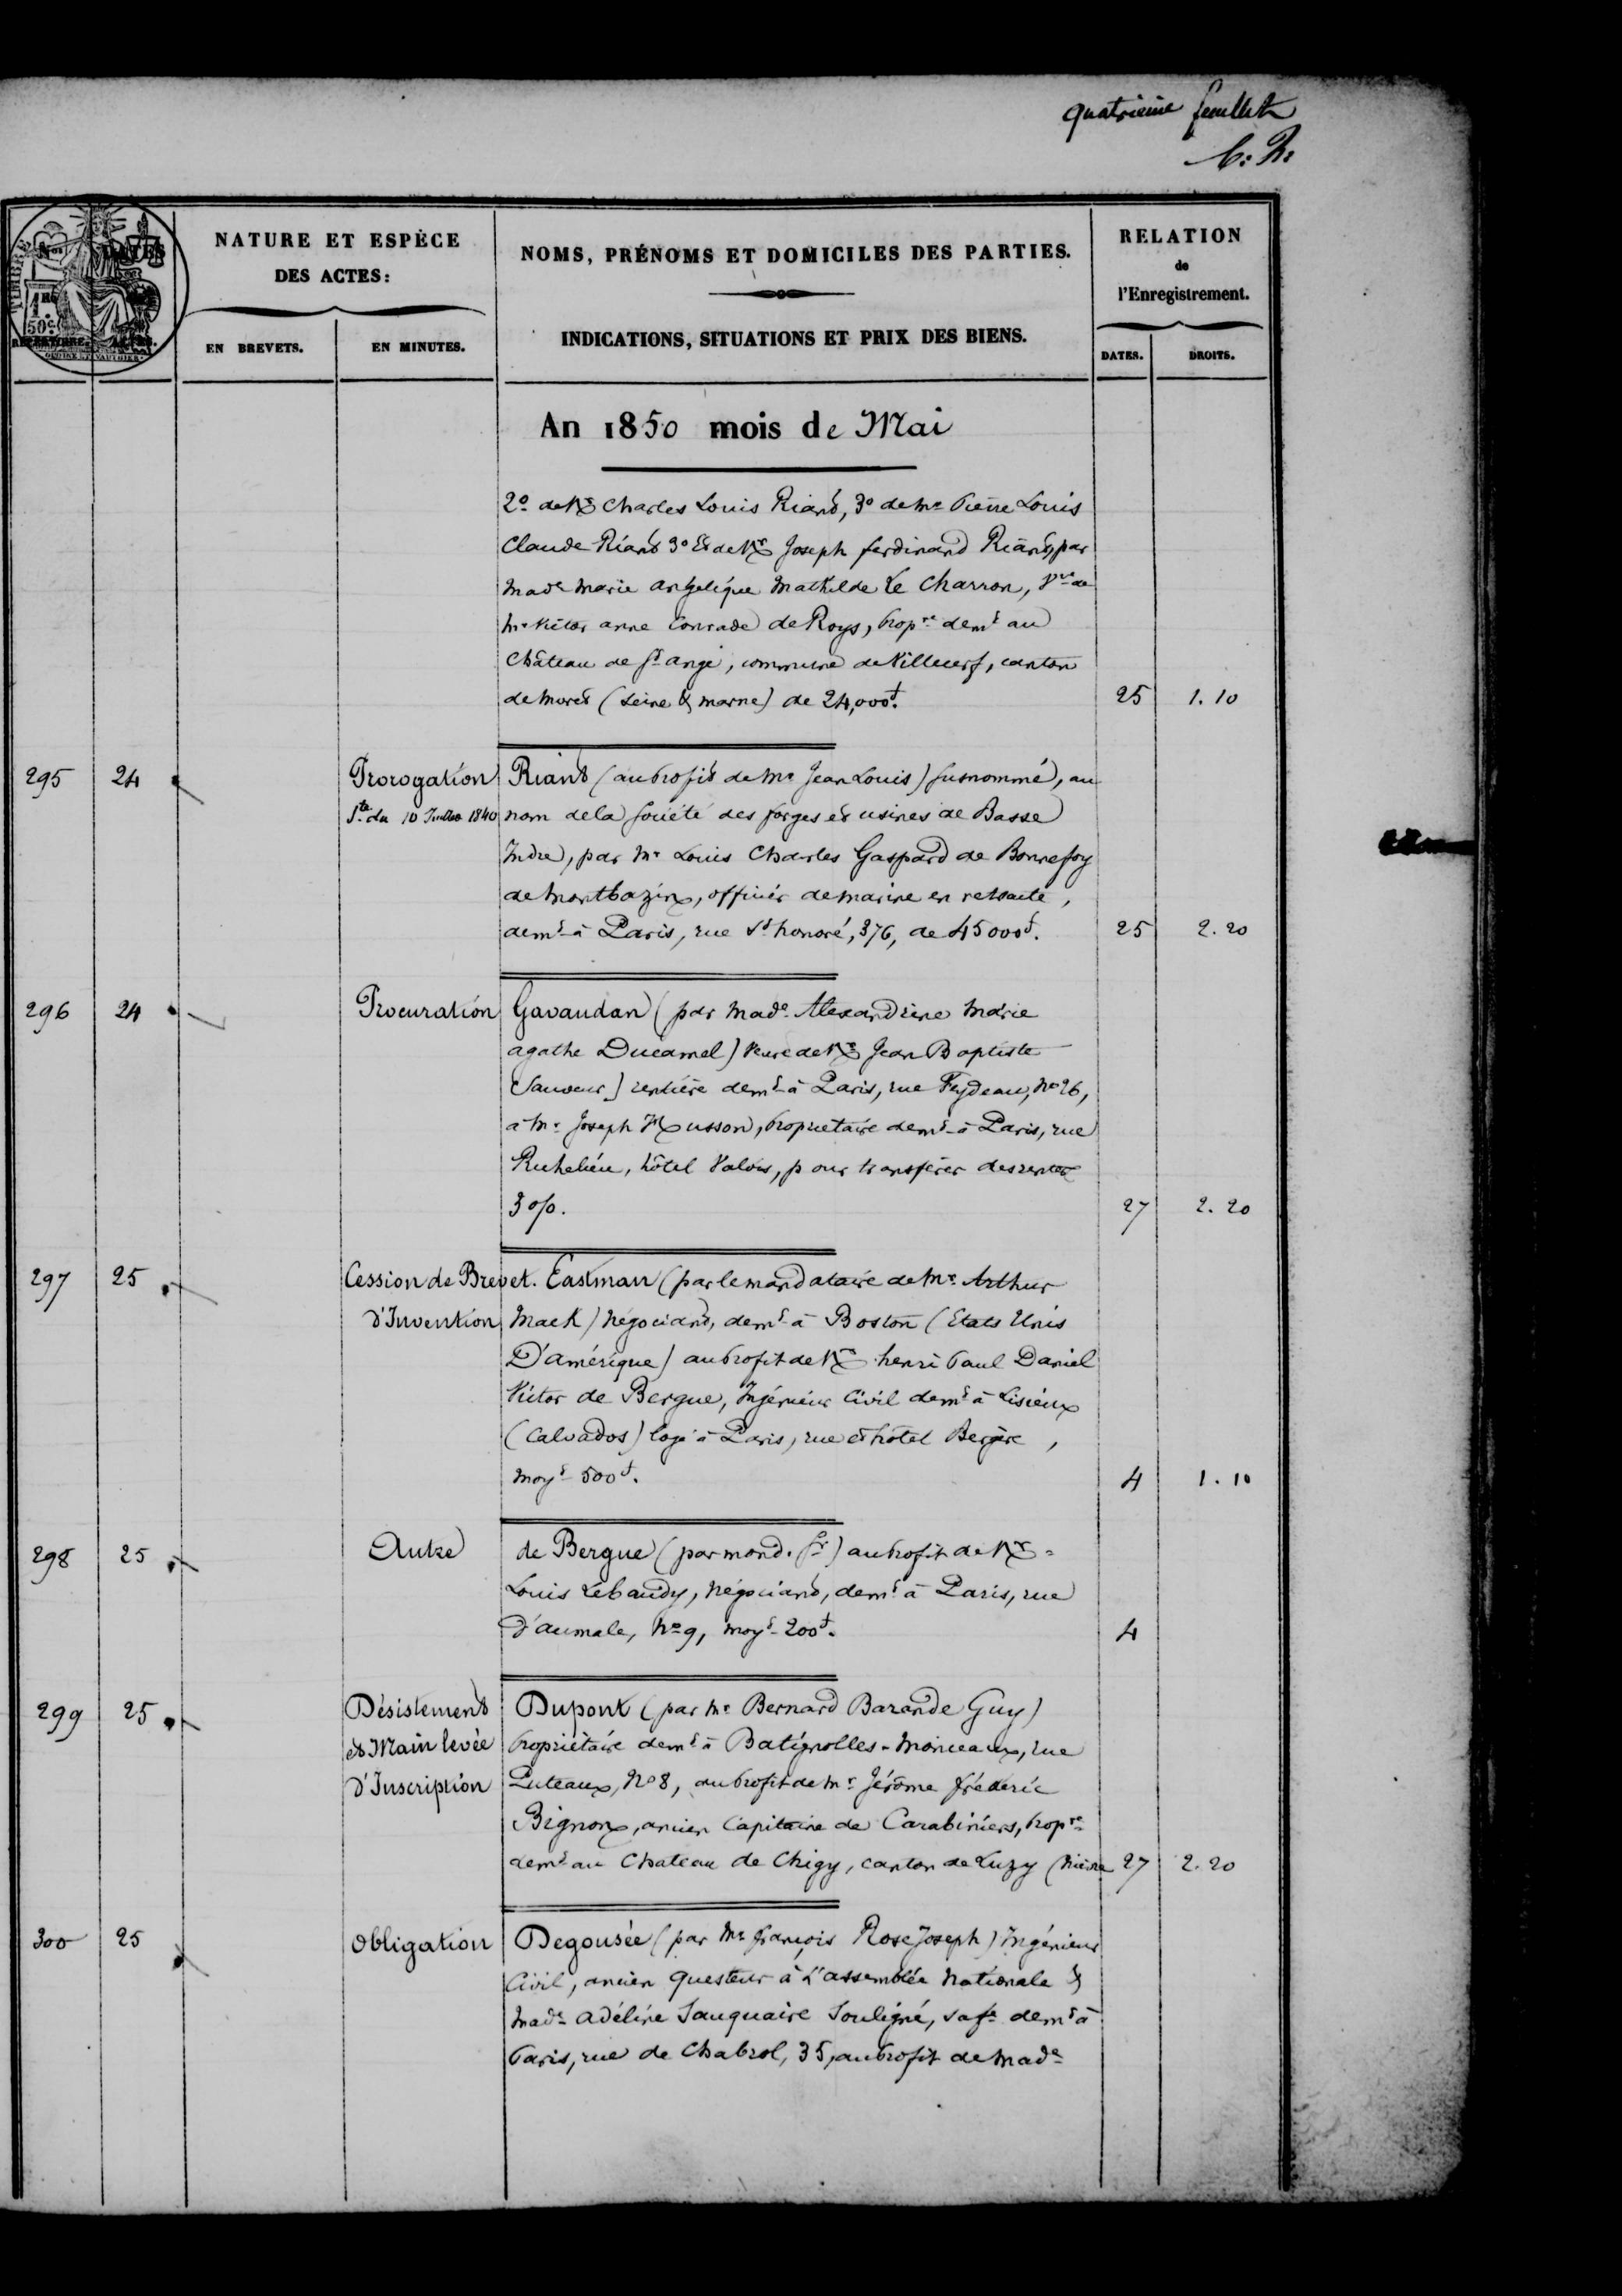 quatrième feuillet
TIMBRE
Nos DATES
1 FR.
50 c.
NATURE ET ESPÈCE
DES ACTES:
EN BREVETS. EN MINUTES.
NOMS, PRÉNOMS ET DOMICILES DES PARTIES.
INDICATIONS, SITUATIONS ET PRIX DES BIENS.
RELATION
de
l'Enregistrement.
DATES. DROITS.
An 1850 mois de Mai
2° de Mr Charles Louis Riant, 3° de Mr Pierre Louis
Claude Riant 3° Et de Mr Joseph ferdinand Riant, par
Made Marie angelique Mathilde Le Charron, Vve de
Mr Victor anne Conrade de Roys, propre demt au
Château de St ange, commune de Villecerf, canton
de Moret (Seine & marne) de 24,000f. 25 1.10
295 24 Prorogation Riant (au profit de Mr Jean Louis) susnommé, au
Ste du 10 Juillet 1840 nom de la société des forges et usines de Basse
Indre, par Mr Louis Charles Gaspard de Bonnefoy
de Montbazin, officier de marine en retraite,
demt à Paris, rue St honoré, 376, de 45000f. 25 2.20
296 24 Procuration Gavaudan (par Made Alexandrine Marie
agathe Ducamel) veuve de Mr Jean Baptiste
Sauveur) rentière demt à Paris, rue Feydeau, No 26,
à Mr Joseph Husson, propriétaire demt à Paris, rue
Richelieu, hôtel Valois, pour transférer des rentes
3 o/o. 27 2.20
297 25 Cession de Brevet. Eastman (par le mandataire de Mr Arthur
d'Invention Mack) Négociant, demt à Boston (Etats Unis
D'amérique) au profit de Mr henri Paul Daniel
Victor de Bergue, Ingénieur Civil demt à Lisieux
(Calvados) logé à Paris, rue et hôtel Bergère,
moyt 500f. 4 1.10
298 25 Autre de Bergue (par mond. Sr) au profit de Mr
Louis Lebaudy, Négociant, demt à Paris, rue
d'aumale, No 9, moyt 200f. 4
299 25 Désistement Dupont (par Mr Bernard Barande Guy)
et Main levée propriétaire demt à Batignolles-Monceaux, rue
d'Inscription Puteaux, No 8, au profit de Mr Jérôme frédéric
Bignon, ancien Capitaine de Carabiniers, propre
demt au Chateau de Chigy, canton de Luzy (Nièvre 27 2.20
300 25 Obligation Degousée (par Mr françois Rose Joseph) Ingénieur
Civil, ancien questeur à L'assemblée Nationale &
Made Adéline Sauquaire Souligné, sa fe demt à
Paris, rue de Chabrol, 35, au profit de Made